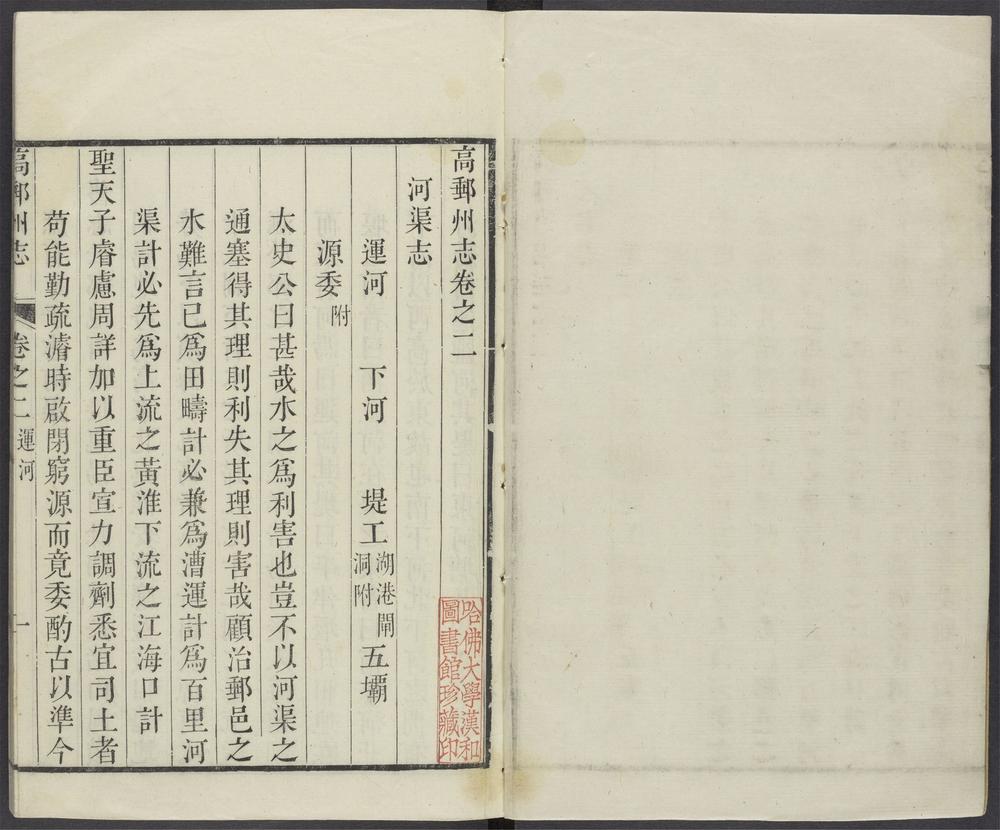 高郵州志卷之二
河渠志
運河　下河　堤工湖港閘洞附　五壩
源委附
太史公曰甚哉水之爲利害也豈不以河渠之
通塞得其理則利失其理則害哉顧治郵邑之
水難言已爲田疇計必兼爲漕運計爲百里河
渠計必先爲上流之黃淮下流之江海口計
聖天子睿慮周詳加以重臣宣力調劑悉宜司土者
苟能勤疏濬時啟閉窮源而竟委酌古以準今
高郵州志　卷之二　運河　一
哈佛大學漢和
圖書館珍藏印